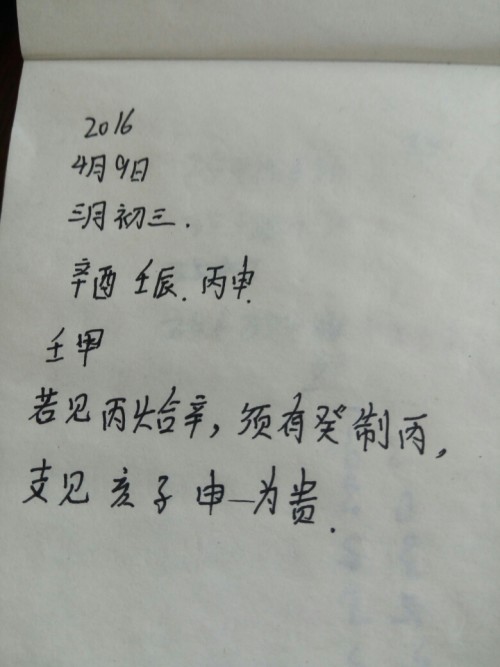 2016
4月9日
三月初三.
辛酉 壬辰. 丙申.
壬甲
若见丙火合辛,须有癸制丙,
支见 亥子 申—为贵.